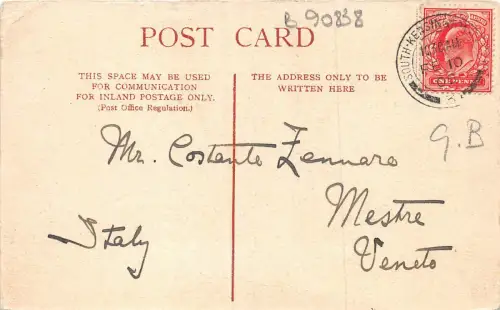 B 90838
POST CARD
THIS SPACE MAY BE USED
FOR COMMUNICATION
FOR INLAND POSTAGE ONLY.
(Post Office Regulation.)
THE ADDRESS ONLY TO BE
WRITTEN HERE
ONE PENNY
G.B
Mr. Costante Zennaro
Mestre
Veneto
Italy